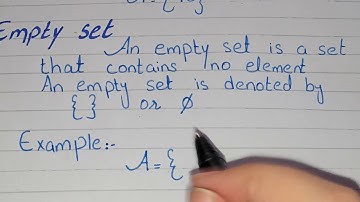 Empty set
An empty set is a set
that contains no element
An empty set is denoted by
{ } or ∅
Example:-
A = {